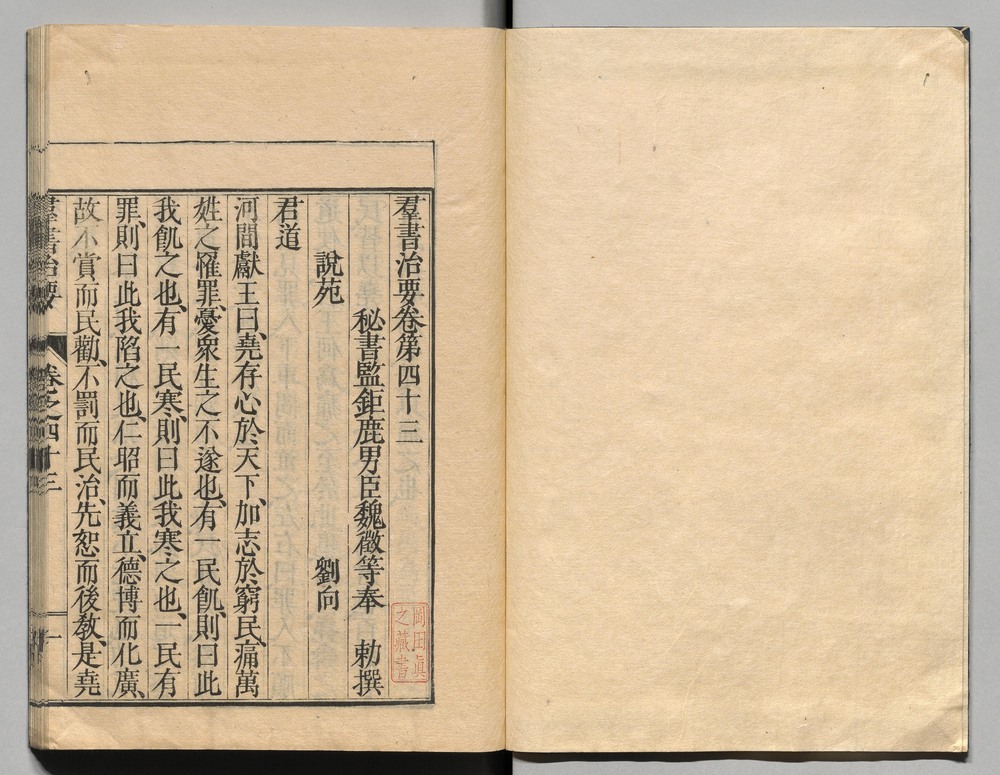 羣書治要卷第四十三
秘書監鉅鹿男臣魏徵等奉　勅撰
說苑　劉向
君道
河間獻王曰、堯存心於天下、加志於窮民、痛萬
姓之罹罪、憂衆生之不遂也、有一民飢、則曰此
我飢之也、有一民寒、則曰此我寒之也、一民有
罪、則曰此我陷之也、仁昭而義立、德博而化廣、
故不賞而民勸、不罰而民治、先恕而後教、是堯
羣書治要　卷之四十三　一
岡田眞
之藏書